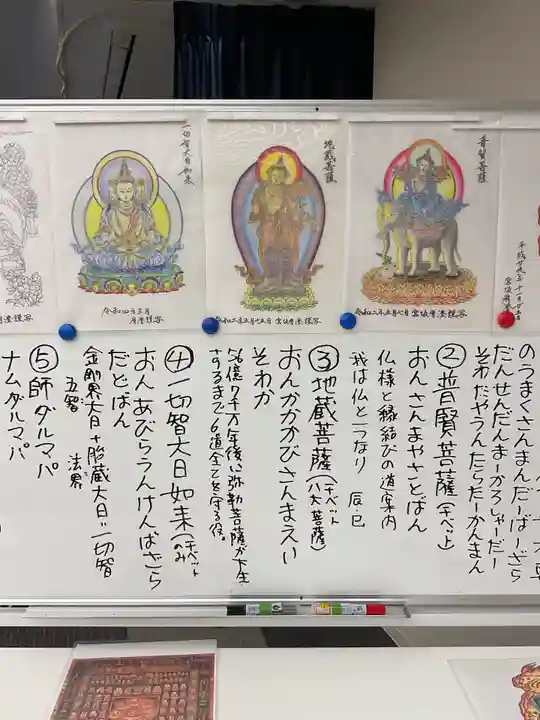 普賢菩薩
令和二年五月八日 宮坂宥湊謹写
地蔵菩薩
令和二年五月十五日 宮坂宥湊謹写
一切智大日如来
令和四年三月
宥湊謹写
のうまくさんまんだーばーざら
だんせんだんまーかろしゃーだー
そわたやうんたらたーかんまん
②普賢菩薩(チベット)
おんさんまやさとばん
仏様と縁結びの道案内
我は仏と一つなり 辰・巳
③地蔵菩薩(チベット
八大菩薩)
おんかかかびさんまえい
そわか
56億7千万年後に弥勒菩薩が下生
されるまで6道全てを守る役。
④一切智大日如来(チベット
のみ)
おんあびらうんけんばざら
だとばん
金剛界大日+胎蔵大日=一切智
五智 法界
⑤師ダルマパ
ナムダルマパ